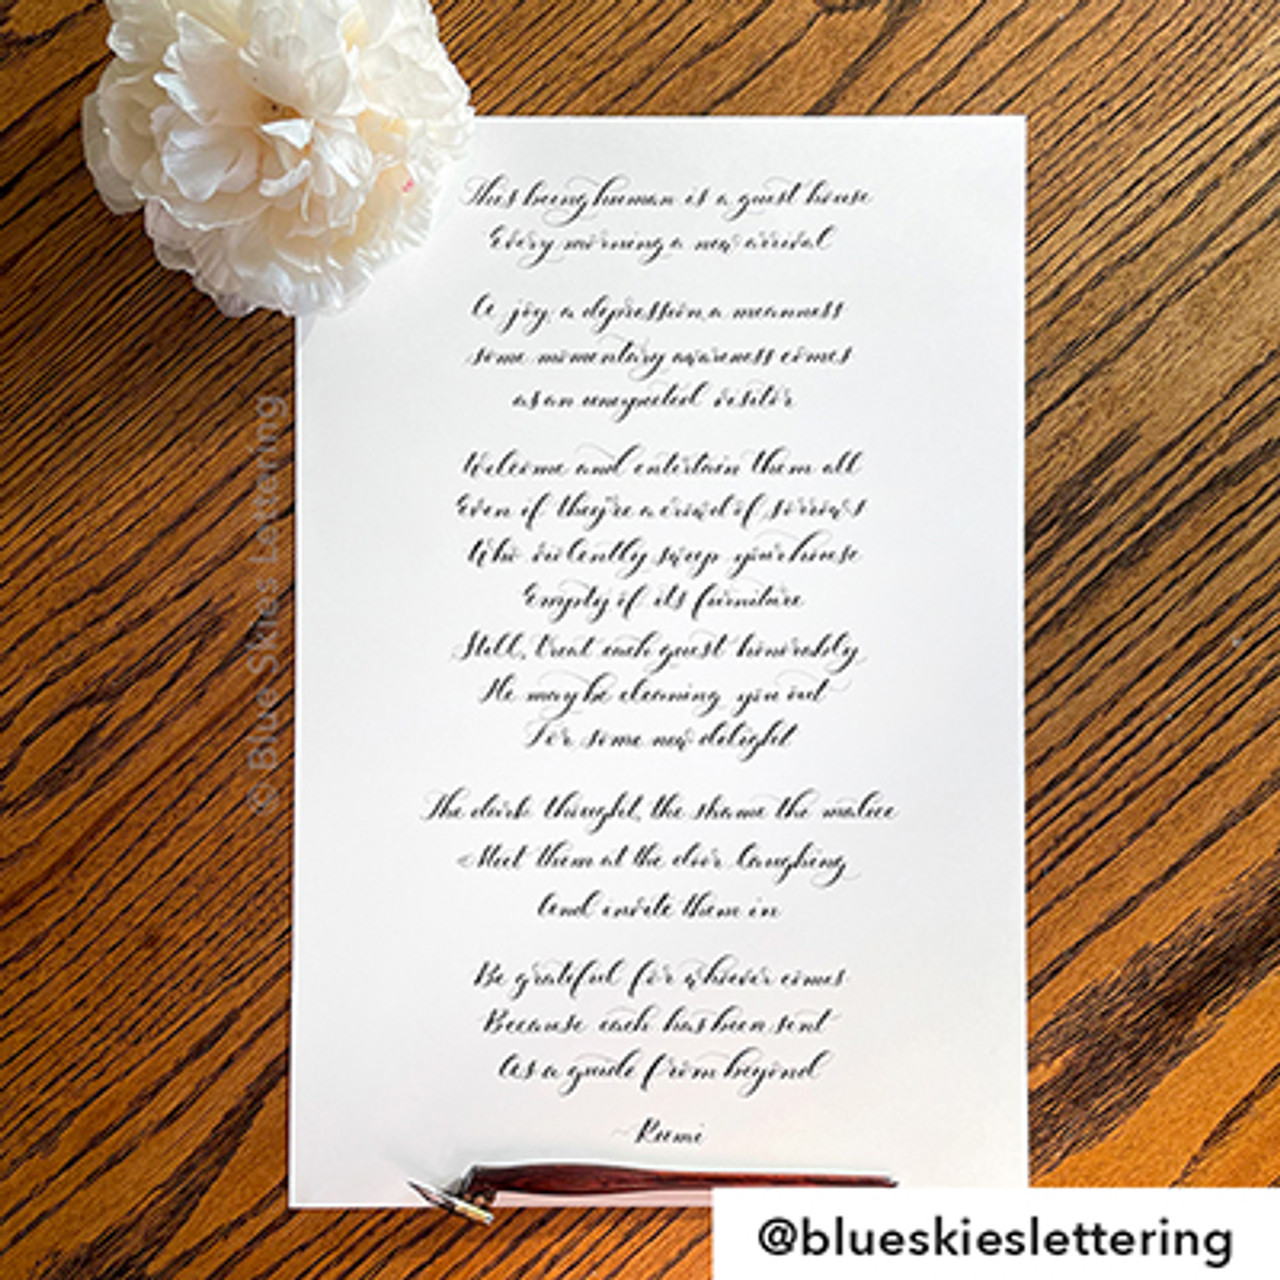 This being human is a guest house
Every morning a new arrival
A joy, a depression, a meanness
some momentary awareness comes
as an unexpected visitor
Welcome and entertain them all
Even if they're a crowd of sorrows
Who violently sweep your house
Empty of its furniture
Still, treat each guest honorably
He may be cleaning you out
For some new delight
The dark thought, the shame the malice
Meet them at the door laughing
And invite them in
Be grateful for whoever comes
Because each has been sent
As a guide from beyond
~Rumi
© Blue Skies Lettering
@blueskieslettering